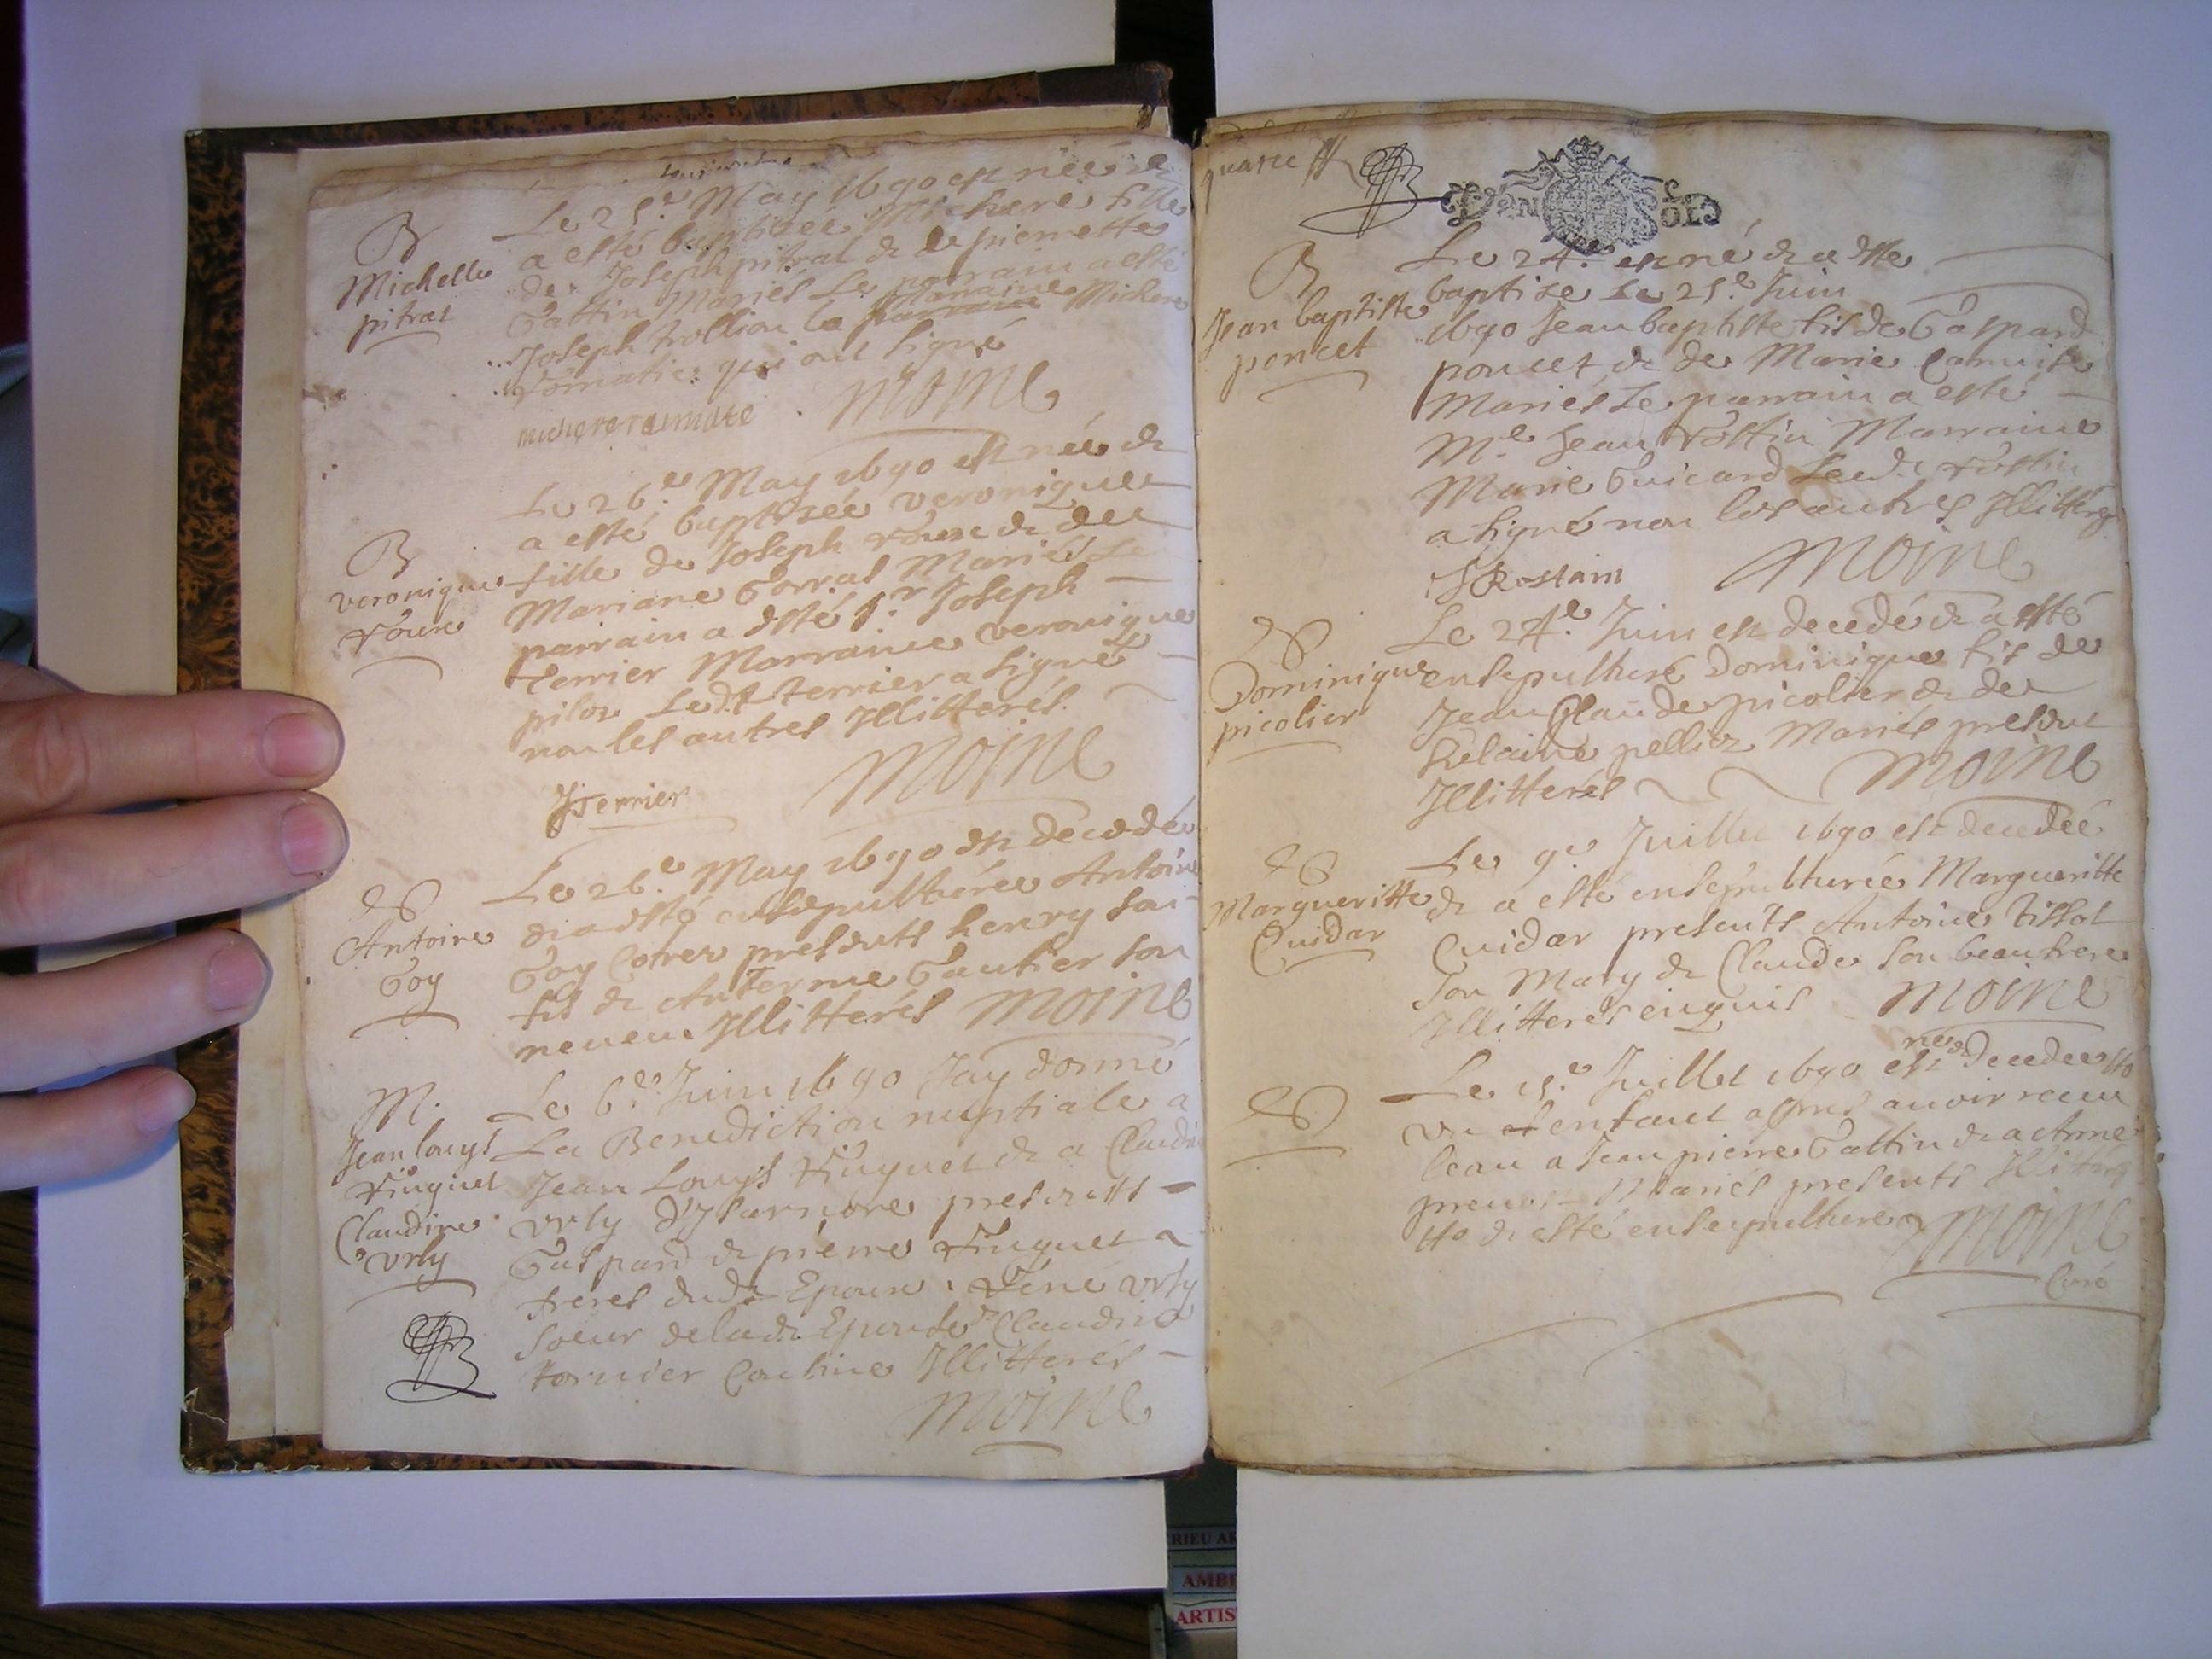 B
Michelle
pitrat
Le 25.e May 1690 est neé &
a esté baptiseé Michere fille
de Joseph pitrat & de pierrette
Gattin Mariés Le parrain a esté
Joseph trollion la Marraine Michere
qui ont signé
Moine
B
veronique
Le 26.e May 1690 est neé &
a esté baptiseé veronique
fille de Joseph & de
Mariane Gorrat Mariés Le
parrain a esté Sr Joseph
Terrier Marraine veronique
pilot Ledt terrier a signé
non les autres Illitterés
JTerrier
Moine
Antoine
Goy
Le 26.e May 1690 est decedé
& a esté ensepulthuree Antoine
Goy presents henry son
fils & Anterme Gautier son
neveu Illitterés Moine
M.
Jean louys
Claudine
vrly
Le 6.e Juin 1690 Jay donné
La Benediction nuptiale a
Jean Louys & a Claudine
vrly presents
Gaspard & pierre
freres dudt Epoux vrly
soeur deladt Epouse Claudine
tornier Cousine Illitterés
Moine
quatre
B
Jean baptiste
poncet
Le 24.e est né & a esté
baptise Le 25.e Juin
1690 Jean baptiste fils de Gaspard
poncet & de Marie
Mariés Le parrain a esté
M.e Jean Marraine
Marie Guicard Ledt
a signé non les autres Illitterés
JRostain
Moine
Dominique
picolier
Le 24.e Juin est decedé & a esté
ensepulthuré Dominique fils de
Jean Glaude picolier & de
helaine pellier Mariés presents
Illitterés
Moine
Margueritte
Cuidar
Le 9.e Juillet 1690 est decedeé
& a esté ensepulthureé Margueritte
Cuidar presents Antoine tissot
son Mary & Claude son beaufrere
Illitterés enquis Moine
né &
Le 15.e Juillet 1690 est decedee
un enfant apres avoir receu
leau a Jean pierre Gattin & a Anne
Mariés presents Illitterés
& esté ensepulthere
Moine
Curé
RIEU
AMBI
ARTIS